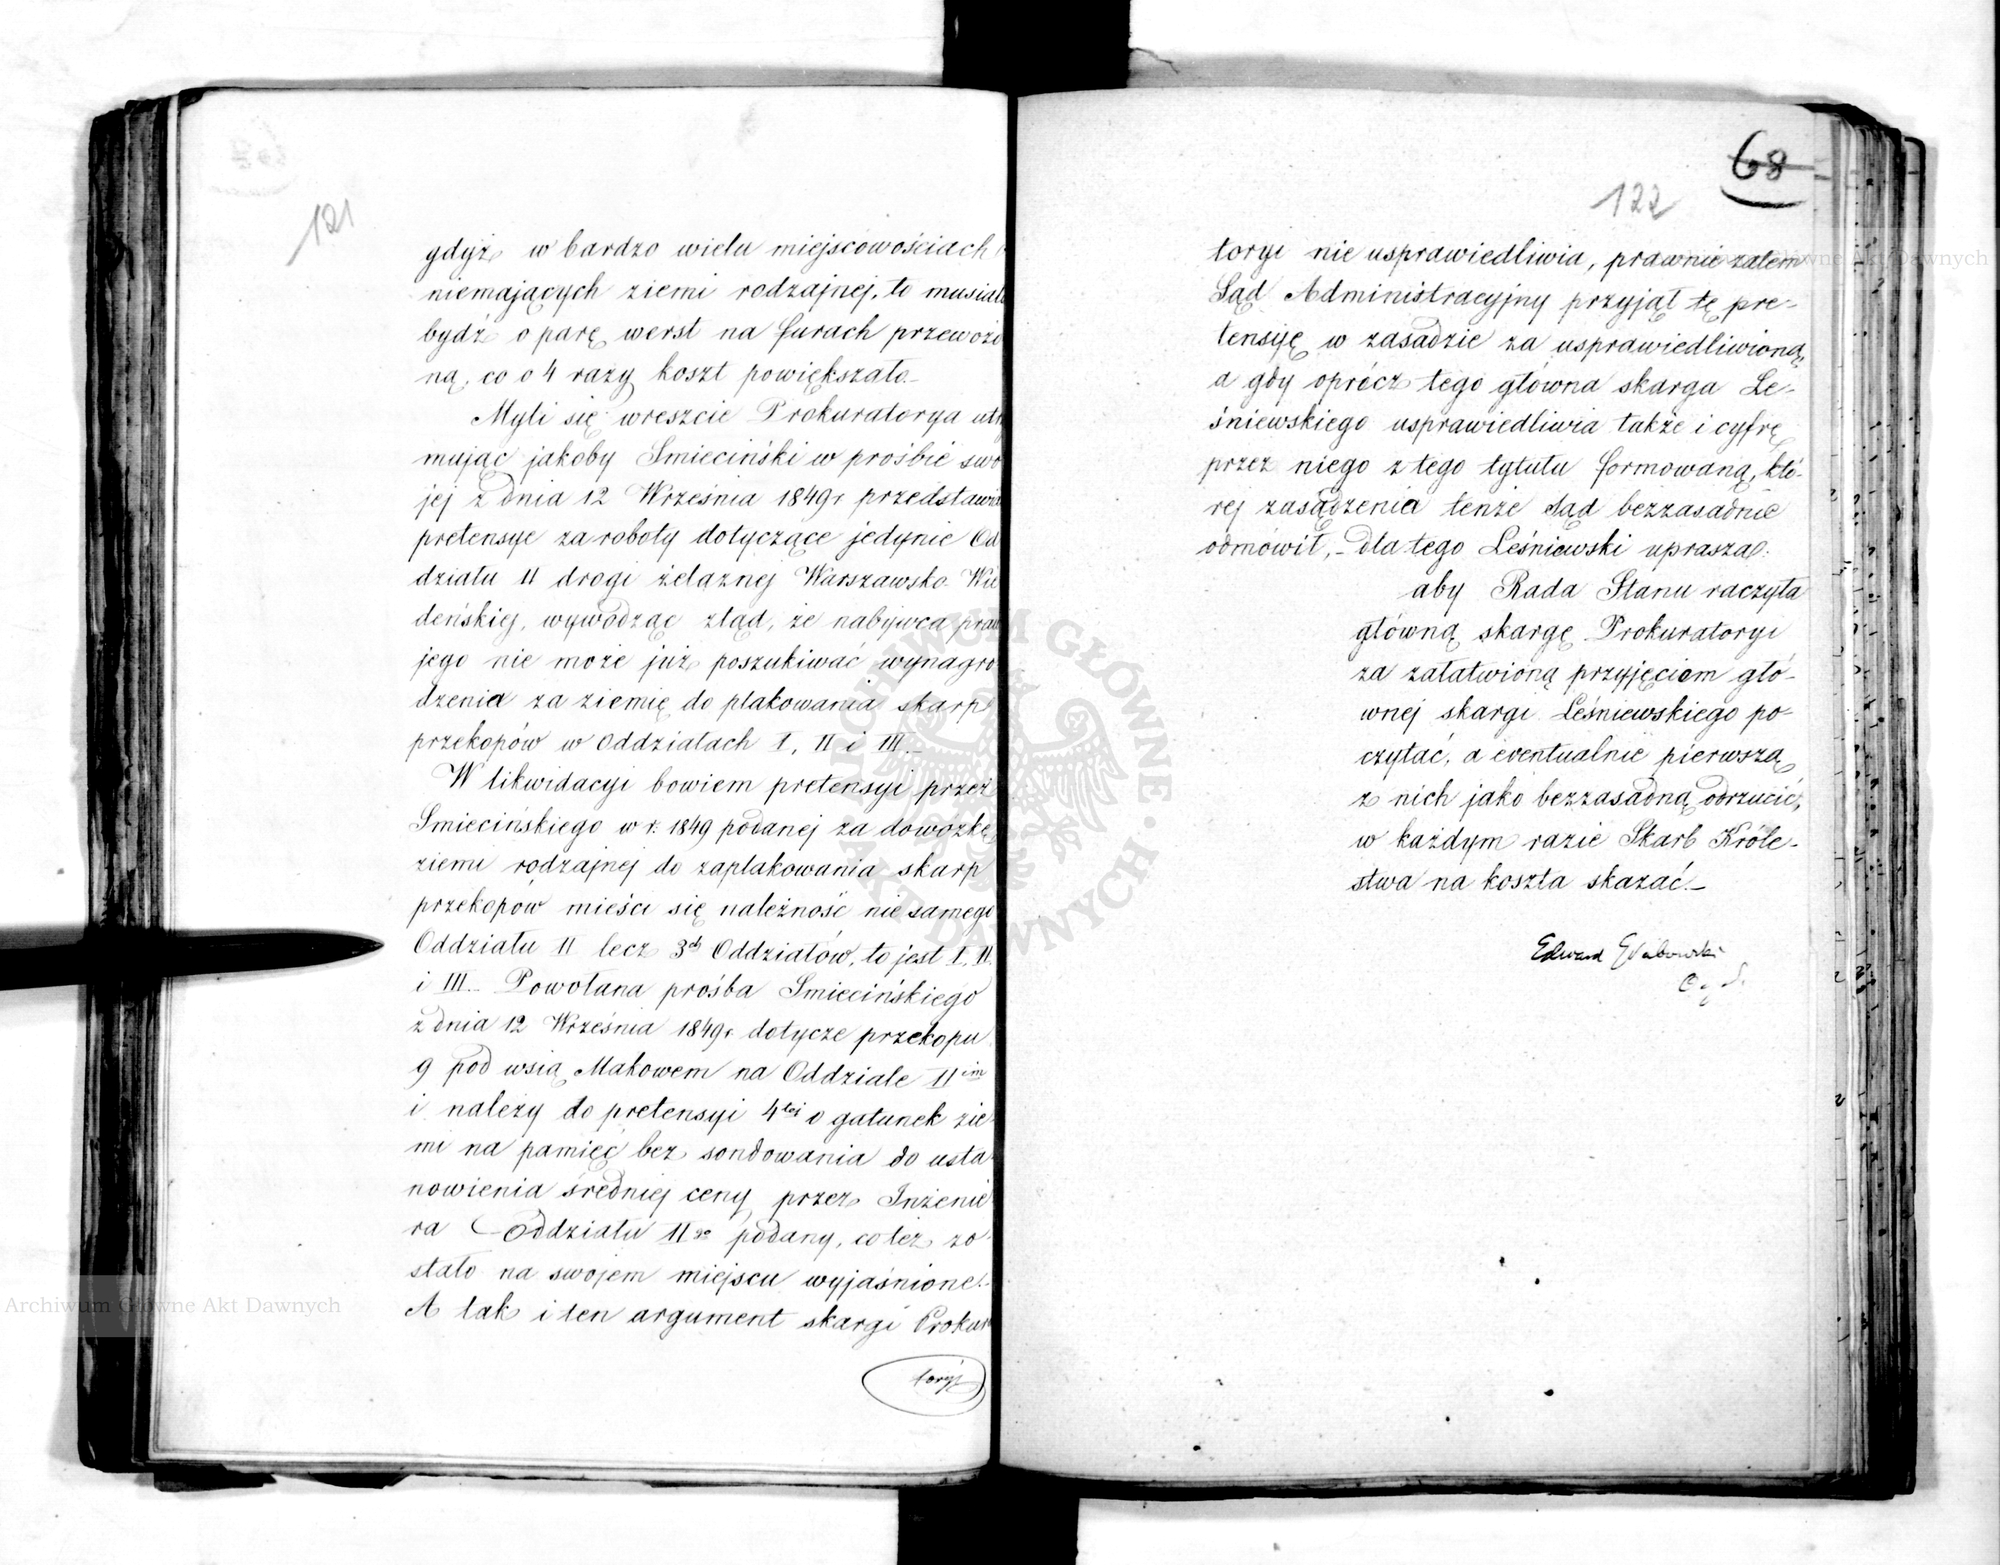 121
gdyż w bardzo wielu miejscowościach
niemających ziemi rodzajnej, to musiała
bydź o parę werst na furach przewożo
ną, co o 4 razy koszt powiększało._
Myli się wreszcie Prokuratorya utrzy
mując jakoby Smieciński w prośbie swo
jej z dnia 12 Września 1849 r przedstawia
pretensye za roboty dotyczące jedynie Od
działu II drogi żelaznej Warszawsko Wie
deńskiej, wywodząc ztąd, że nabywca praw
jego nie może już poszukiwać wynagro
dzenia za ziemię do plakowania skarp
przekopów w Oddziałach I, II i III._
W likwidacyi bowiem pretensyi przez
Smiecińskiego w r. 1849 podanej za dowózkę
ziemi rodzajnej do zaplakowania skarp
przekopów mieści się należność nie samego
Oddziału II lecz 3ch Oddziałów, to jest I, II
i III._ Powołana prośba Smiecińskiego
z dnia 12 Września 1849 r dotycze przekopu
9 pod wsią Makowem na Oddziale IIim
i należy do pretensyi 4tej o gatunek zie
mi na pamięć bez sondowania do usta
nowienia średniej ceny przez Inżenie
ra Oddziału IIgo podany, co też zo
stało na swojem miejscu wyjaśnione._
A tak i ten argument skargi Prokura
toryi
68
122
toryi nie usprawiedliwia, prawnie zatem
Sąd Administracyjny przyjął tę pre-
tensyę w zasadzie za usprawiedliwioną,
a gdy oprócz tego główna skarga Le-
śniewskiego usprawiedliwia także i cyfrę
przez niego z tego tytułu formowaną, któ-
rej zasądzenia tenże Sąd bezzasadnie
odmówił, _ dla tego Leśniewski uprasza:
aby Rada Stanu raczyła
główną skargę Prokuratoryi
za załatwioną przyjęciem głó-
wnej skargi Leśniewskiego po-
czytać, a eventualnie pierwszą
z nich jako bezzasadną odrzucić,
w każdym razie Skarb Króle-
stwa na koszta skazać._
Edward
ARCHIWUM GŁÓWNE AKT DAWNYCH
Archiwum Główne Akt Dawnych
Archiwum Główne Akt Dawnych